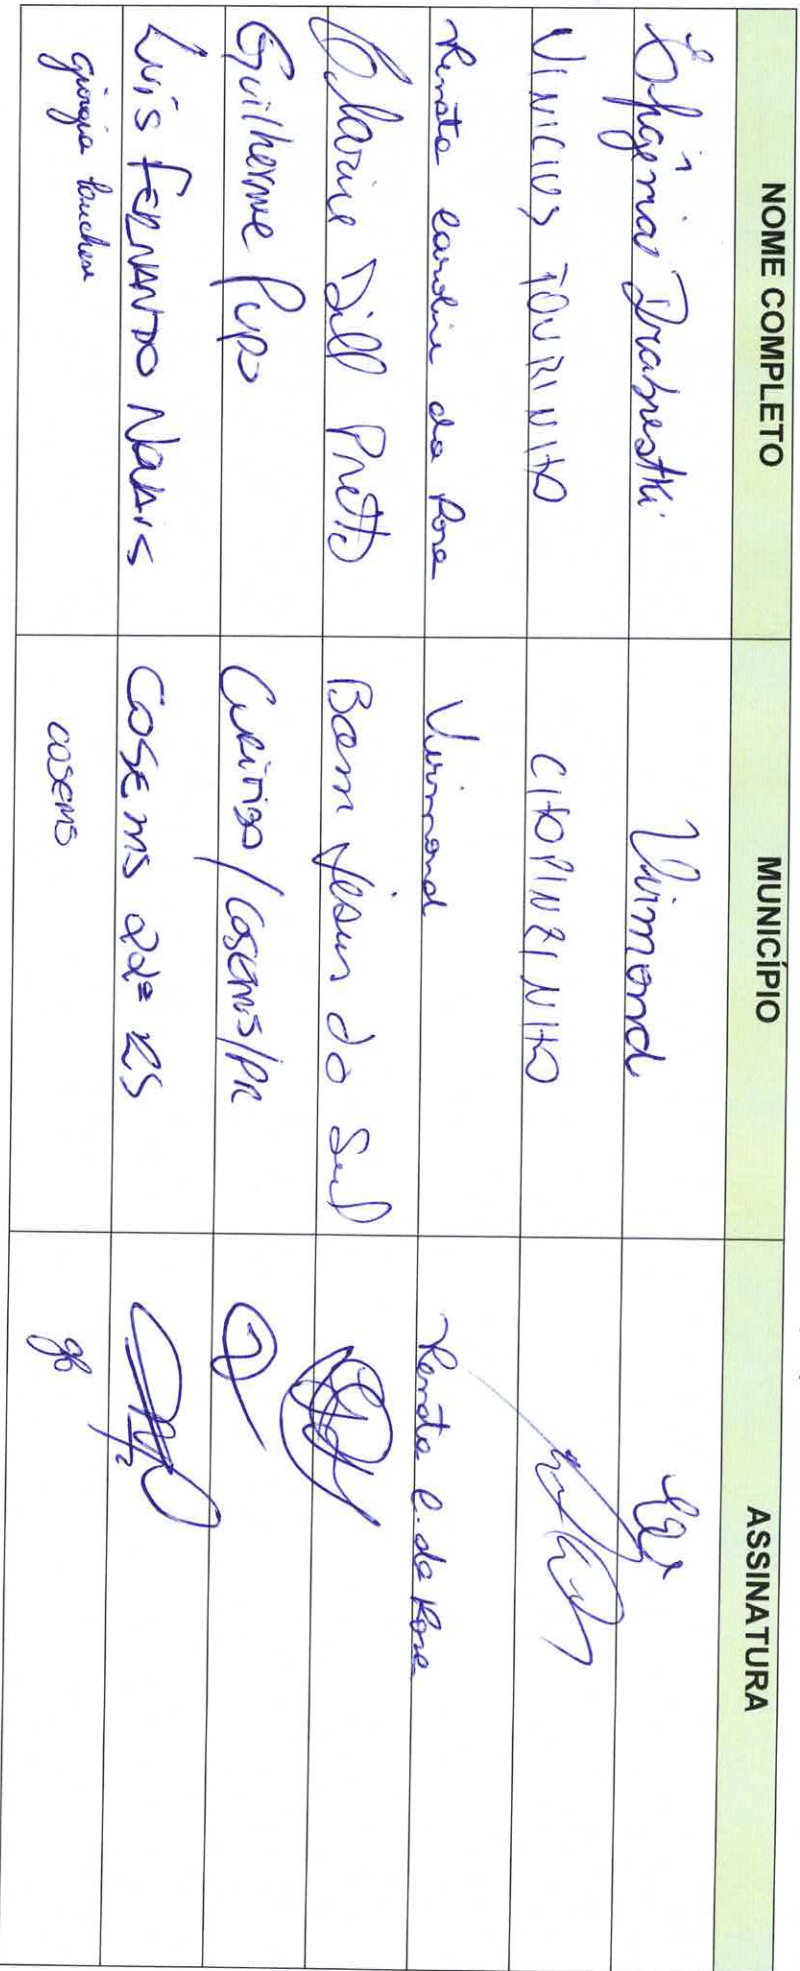 NOME COMPLETO MUNICÍPIO ASSINATURA
Ephigenia Drabrestki Virmond
VINICIUS TOURINHO CHOPINZINHO
Renata Caroline da Rosa Virmond Renata C. da Rosa
Clarice Dill Pretto Bom Jesus do Sul
Guilherme Pupo Curitiba / COSEMS/PR
Luís FERNANDO NOVAIS COSEMS 22ª RS
COSEMS